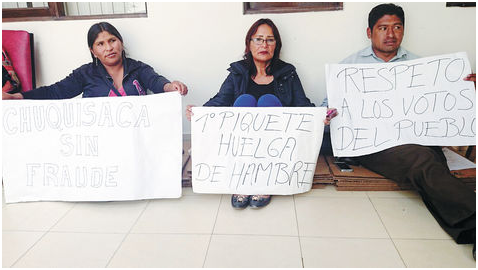 CHUQUISACA
SIN
FRAUDE
1º PIQUETE
HUELGA
DE HAMBRE
RESPETO
A LOS VOTOS
DEL PUEBLO